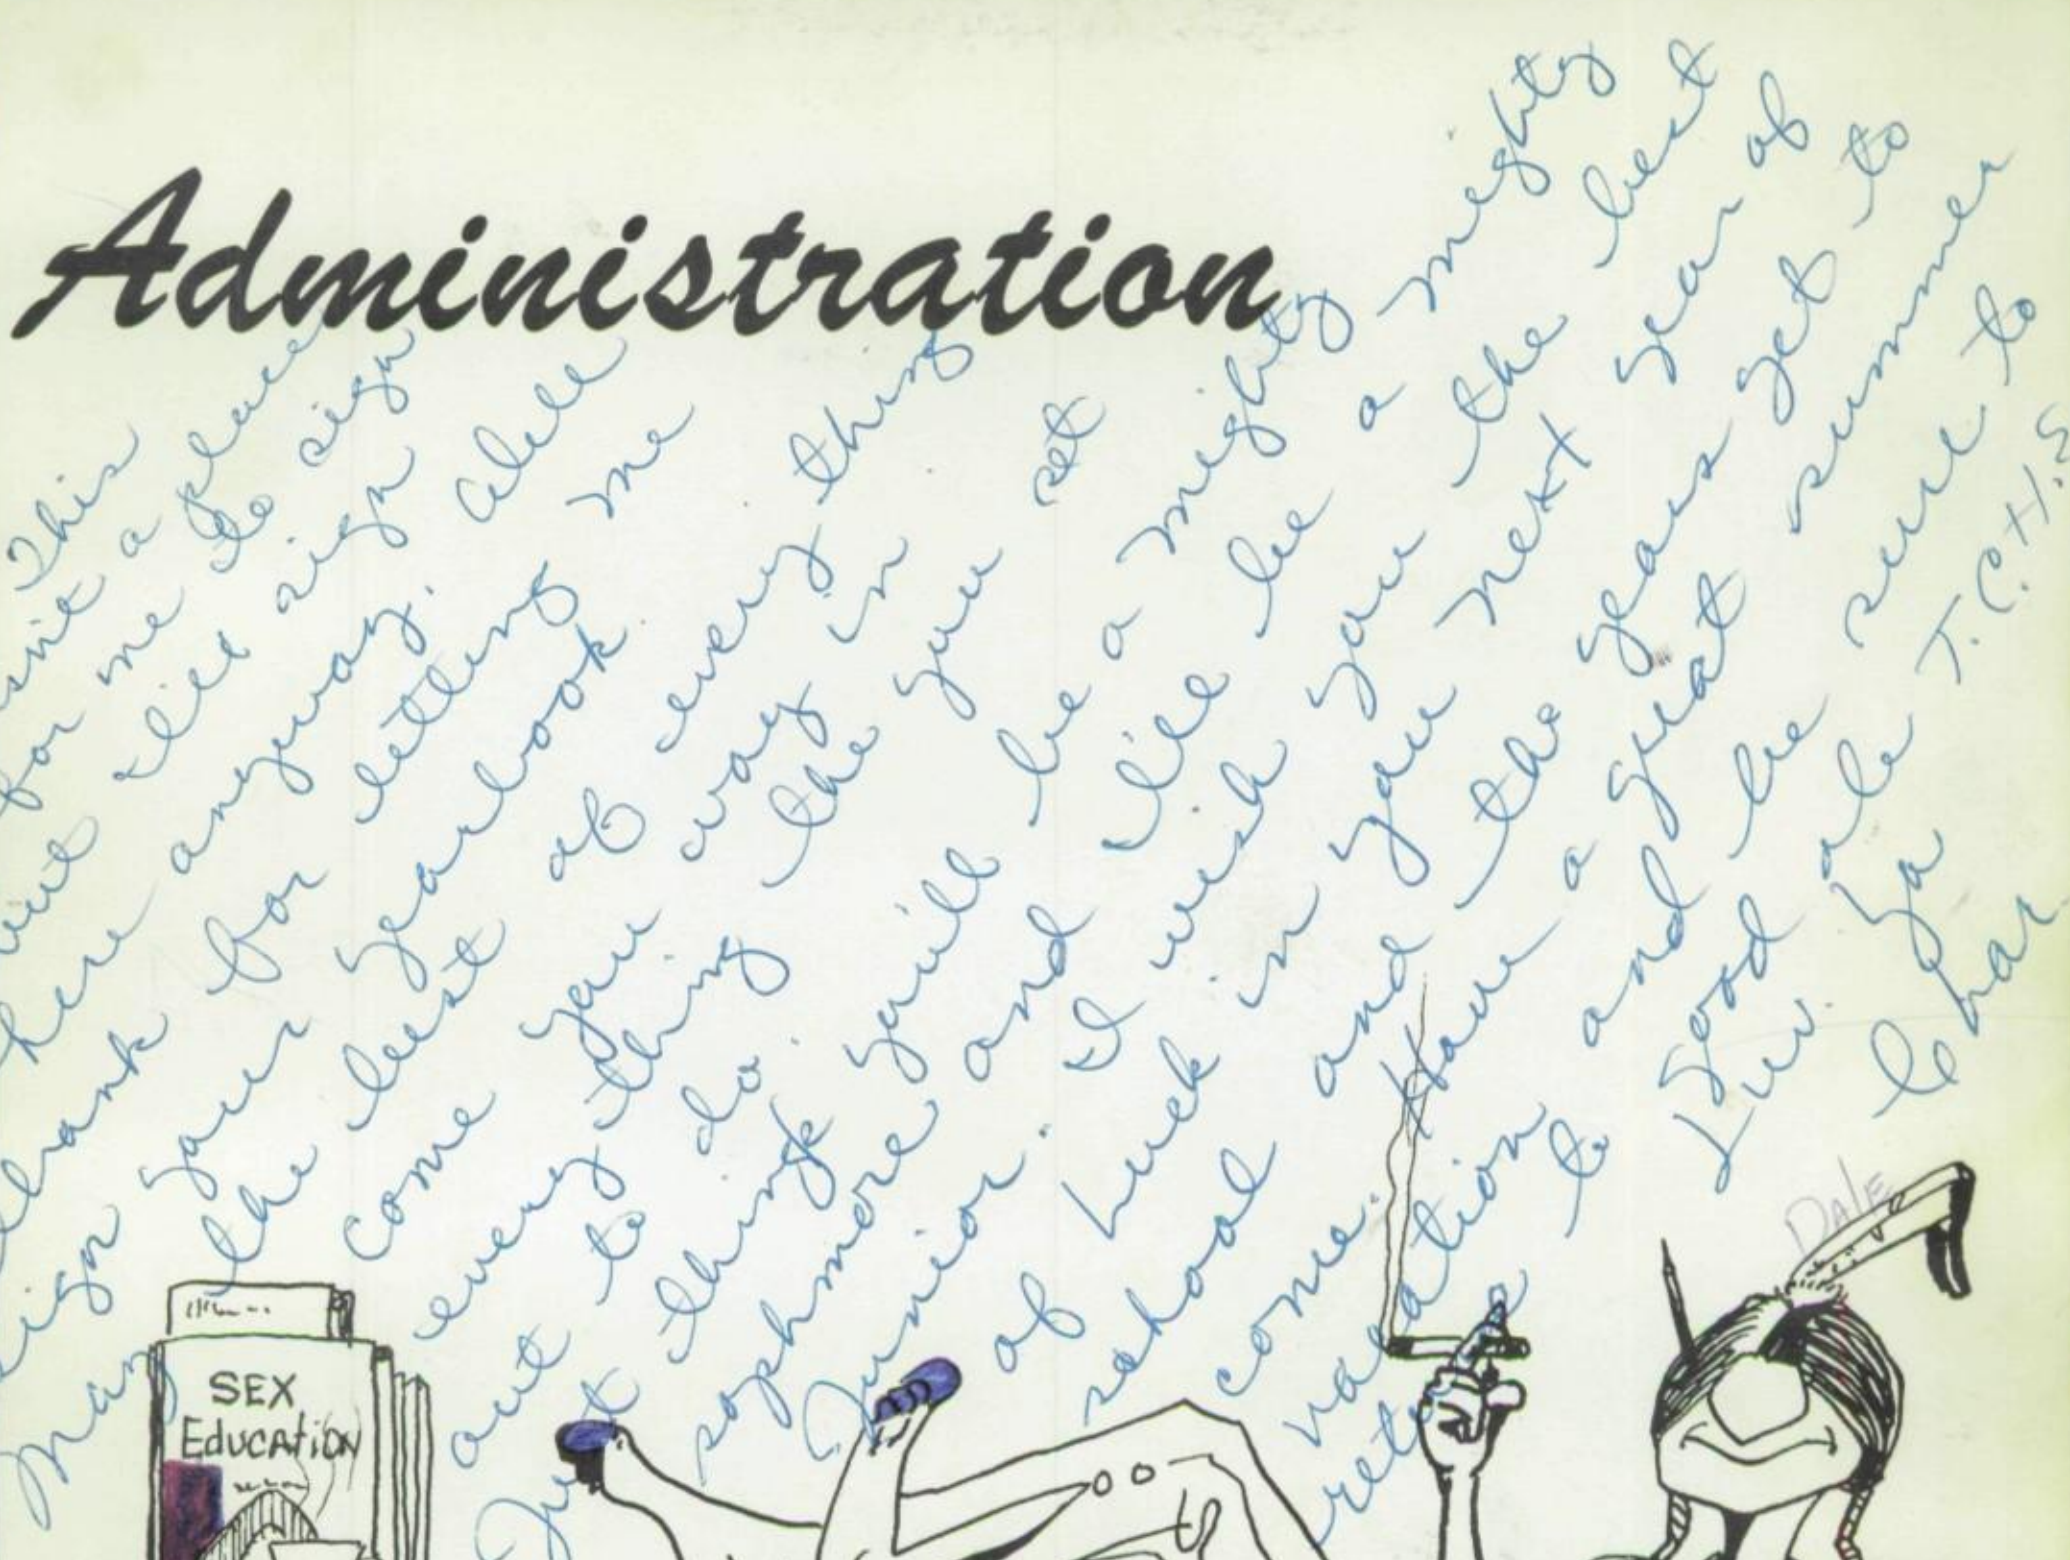 Administration
This
isnt a place
for me to sign
but I'll sign
here anyway. Well
thank for letting me
sign your yearbook.
May the best of every thing
come you way in
every thing the you set
out to do.
Just think you'll be a mighty
sophmore and I'll be a mighty
Junior. I wish you the best
of Luck in you next year of
school and the years get to
come. Have a great summer
vacation and be sure to
retu to good ale T.C.H.S
Luv. Ya
Char
DALE
SEX
EDUCATION